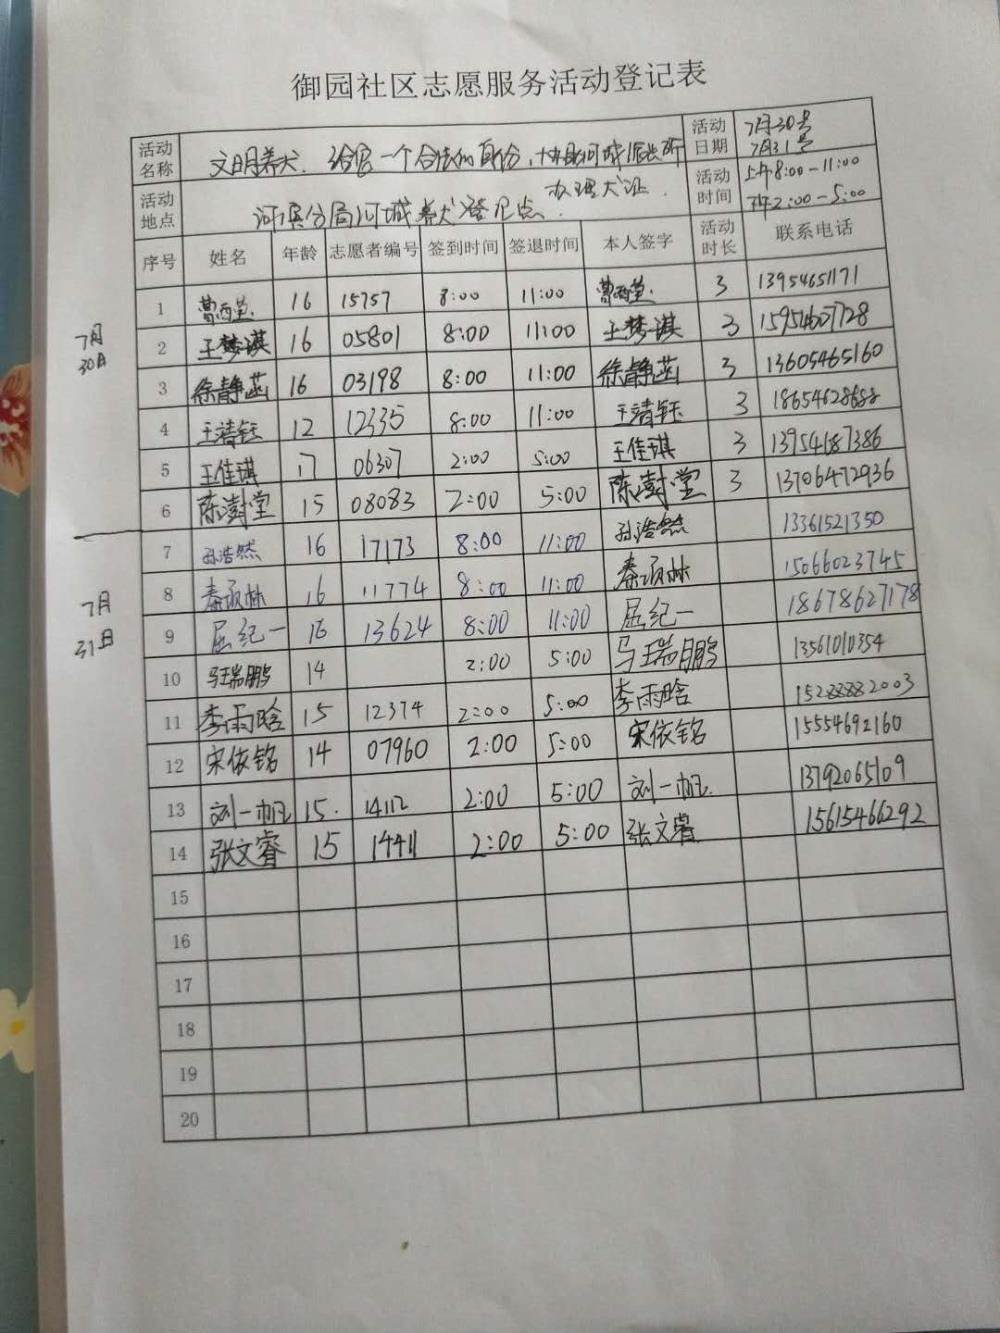 御园社区志愿服务活动登记表
活动名称 文明养犬、给它一个合法的身份,协助河城派出所办理犬证 活动日期 7月30号 7月31号
活动地点 河滨分局河城养犬登记点 活动时间 上午8:00-11:00 下午2:00-5:00
序号 姓名 年龄 志愿者编号 签到时间 签退时间 本人签字 活动时长 联系电话
7月30日
1 16 15757 8:00 11:00 3 13954651171
2 王梦琪 16 05801 8:00 11:00 王梦琪 3 15954607728
3 徐静菡 16 03198 8:00 11:00 徐静菡 3 13605465160
4 王清钰 12 12335 8:00 11:00 王清钰 3 18654628688
5 王佳琪 17 06307 2:00 5:00 王佳琪 3 13954187386
6 陈澍堂 15 08083 2:00 5:00 陈澍堂 3 13706472936
7月31日
7 孙浩然 16 17173 8:00 11:00 孙浩然 13361521350
8 秦硕林 16 11774 8:00 11:00 秦硕林 15066023745
9 屈纪一 16 13624 8:00 11:00 屈纪一 18678627178
10 马瑞鹏 14 2:00 5:00 马瑞鹏 13561010354
11 李雨晗 15 12374 2:00 5:00 李雨晗 15288882003
12 宋依铭 14 07960 2:00 5:00 宋依铭 15554692160
13 刘一帆 15. 14112 2:00 5:00 刘一帆 13792065109
14 张文睿 15 14411 2:00 5:00 张文睿 15615466292
15
16
17
18
19
20